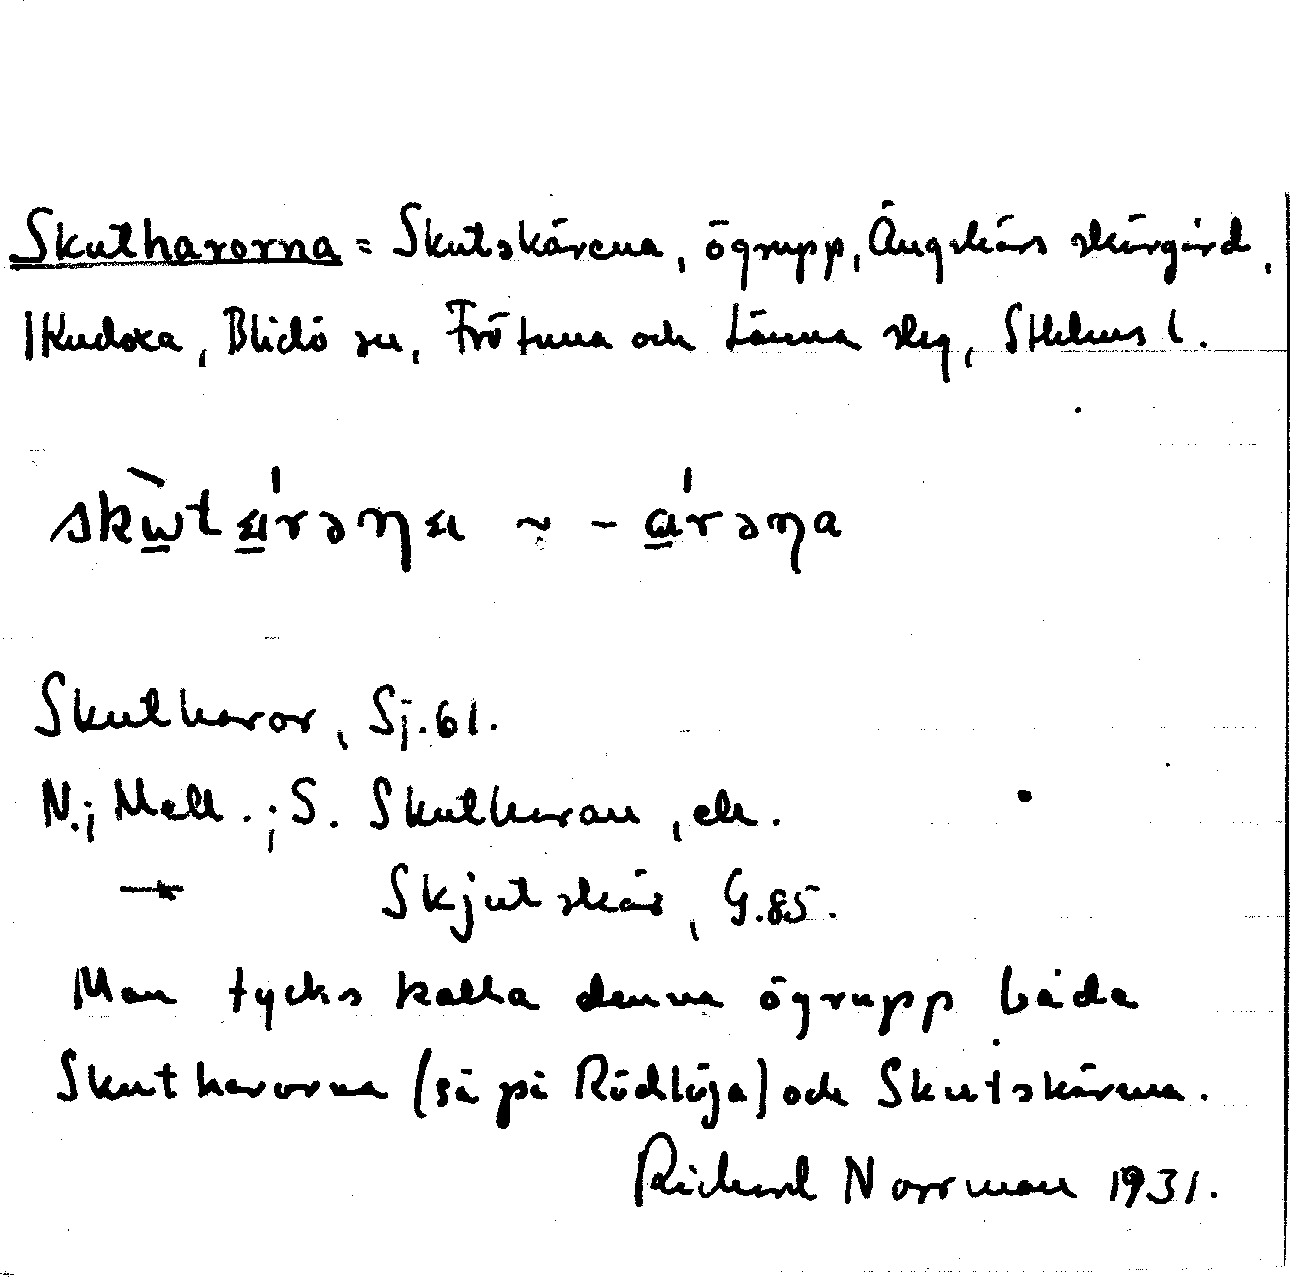 Skutharorna = Skutskärena, ögrupp, Ängskärs skärgård,
Kudoxa, Blidö sn, Frötuna och Länna slg, Sthlms l.
skùtárəṇa ~ - árəṇa
Skutharor, Sj. 61.
N.; Mell.; S. Skutharan, ek.
Skjutskär, G. 85.
Man tycks kalla denna ögrupp båda
Skutharorna (så på Rödlöja) och Skutskärena.
Richard Norrman 1931.